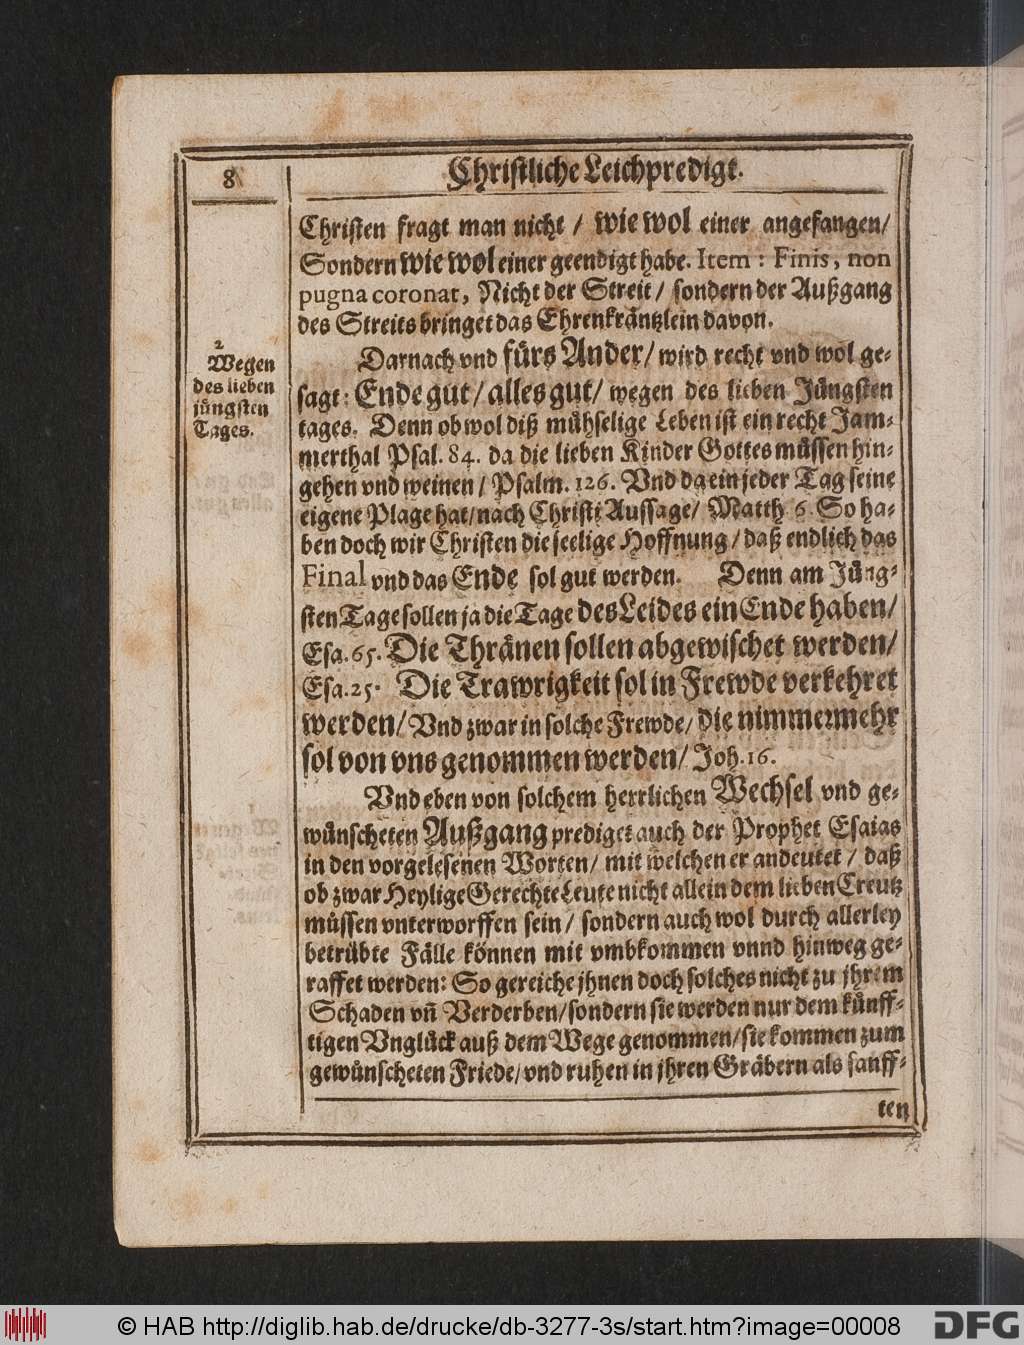 8
Christliche Leichpredigt.
Christen fragt man nicht / wie wol einer angefangen/
Sondern wie wol einer geendigt habe. Item : Finis, non
pugna coronat, Nicht der Streit / sondern der Außgang
des Streits bringet das Ehrenkräntzlein davon.
2
Wegen
des lieben
jüngsten
Tages.
Darnach vnd fürs Ander/ wird recht vnd wol ge-
sagt: Ende gut / alles gut/ wegen des lieben Jüngsten
tages. Denn ob wol diß mühselige Leben ist ein recht Jam-
merthal Psal. 84. da die lieben Kinder Gottes müssen hin-
gehen vnd weinen / Psalm. 126. Vnd da ein jeder Tag seine
eigene Plage hat/nach Christi Aussage/ Matth 6. So ha-
ben doch wir Christen die seelige Hoffnung / daß endlich das
Final vnd das Ende sol gut werden. Denn am Jüng-
sten Tage sollen ja die Tage des Leides ein Ende haben/
Esa. 65. Die Thränen sollen abgewischet werden/
Esa. 25. Die Trawrigkeit sol in Frewde verkehret
werden/ Vnd zwar in solche Frewde/ die nimmermehr
sol von vns genommen werden/ Joh. 16.
Vnd eben von solchem herrlichen Wechsel vnd ge-
wünscheten Außgang prediget auch der Prophet Esaias
in den vorgelesenen Worten/ mit welchen er andeutet / daß
ob zwar Heylige Gerechte Leute nicht allein dem lieben Creutz
müssen vnterworffen sein / sondern auch wol durch allerley
betrübte Fälle können mit vmbkommen vnnd hinweg ge-
raffet werden: So gereiche jhnen doch solches nicht zu jhrem
Schaden vñ Verderben/sondern sie werden nur dem künff-
tigen Vnglück auß dem Wege genommen/sie kommen zum
gewünscheten Friede/ vnd ruhen in jhren Gräbern als sanff-
ten
© HAB http://diglib.hab.de/drucke/db-3277-3s/start.htm?image=00008
DFG